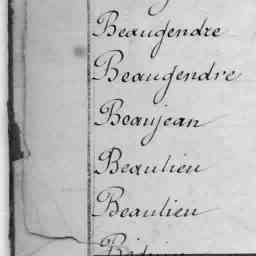 Beaugendre
Beaugendre
Beaujean
Beaulieu
Beaulieu